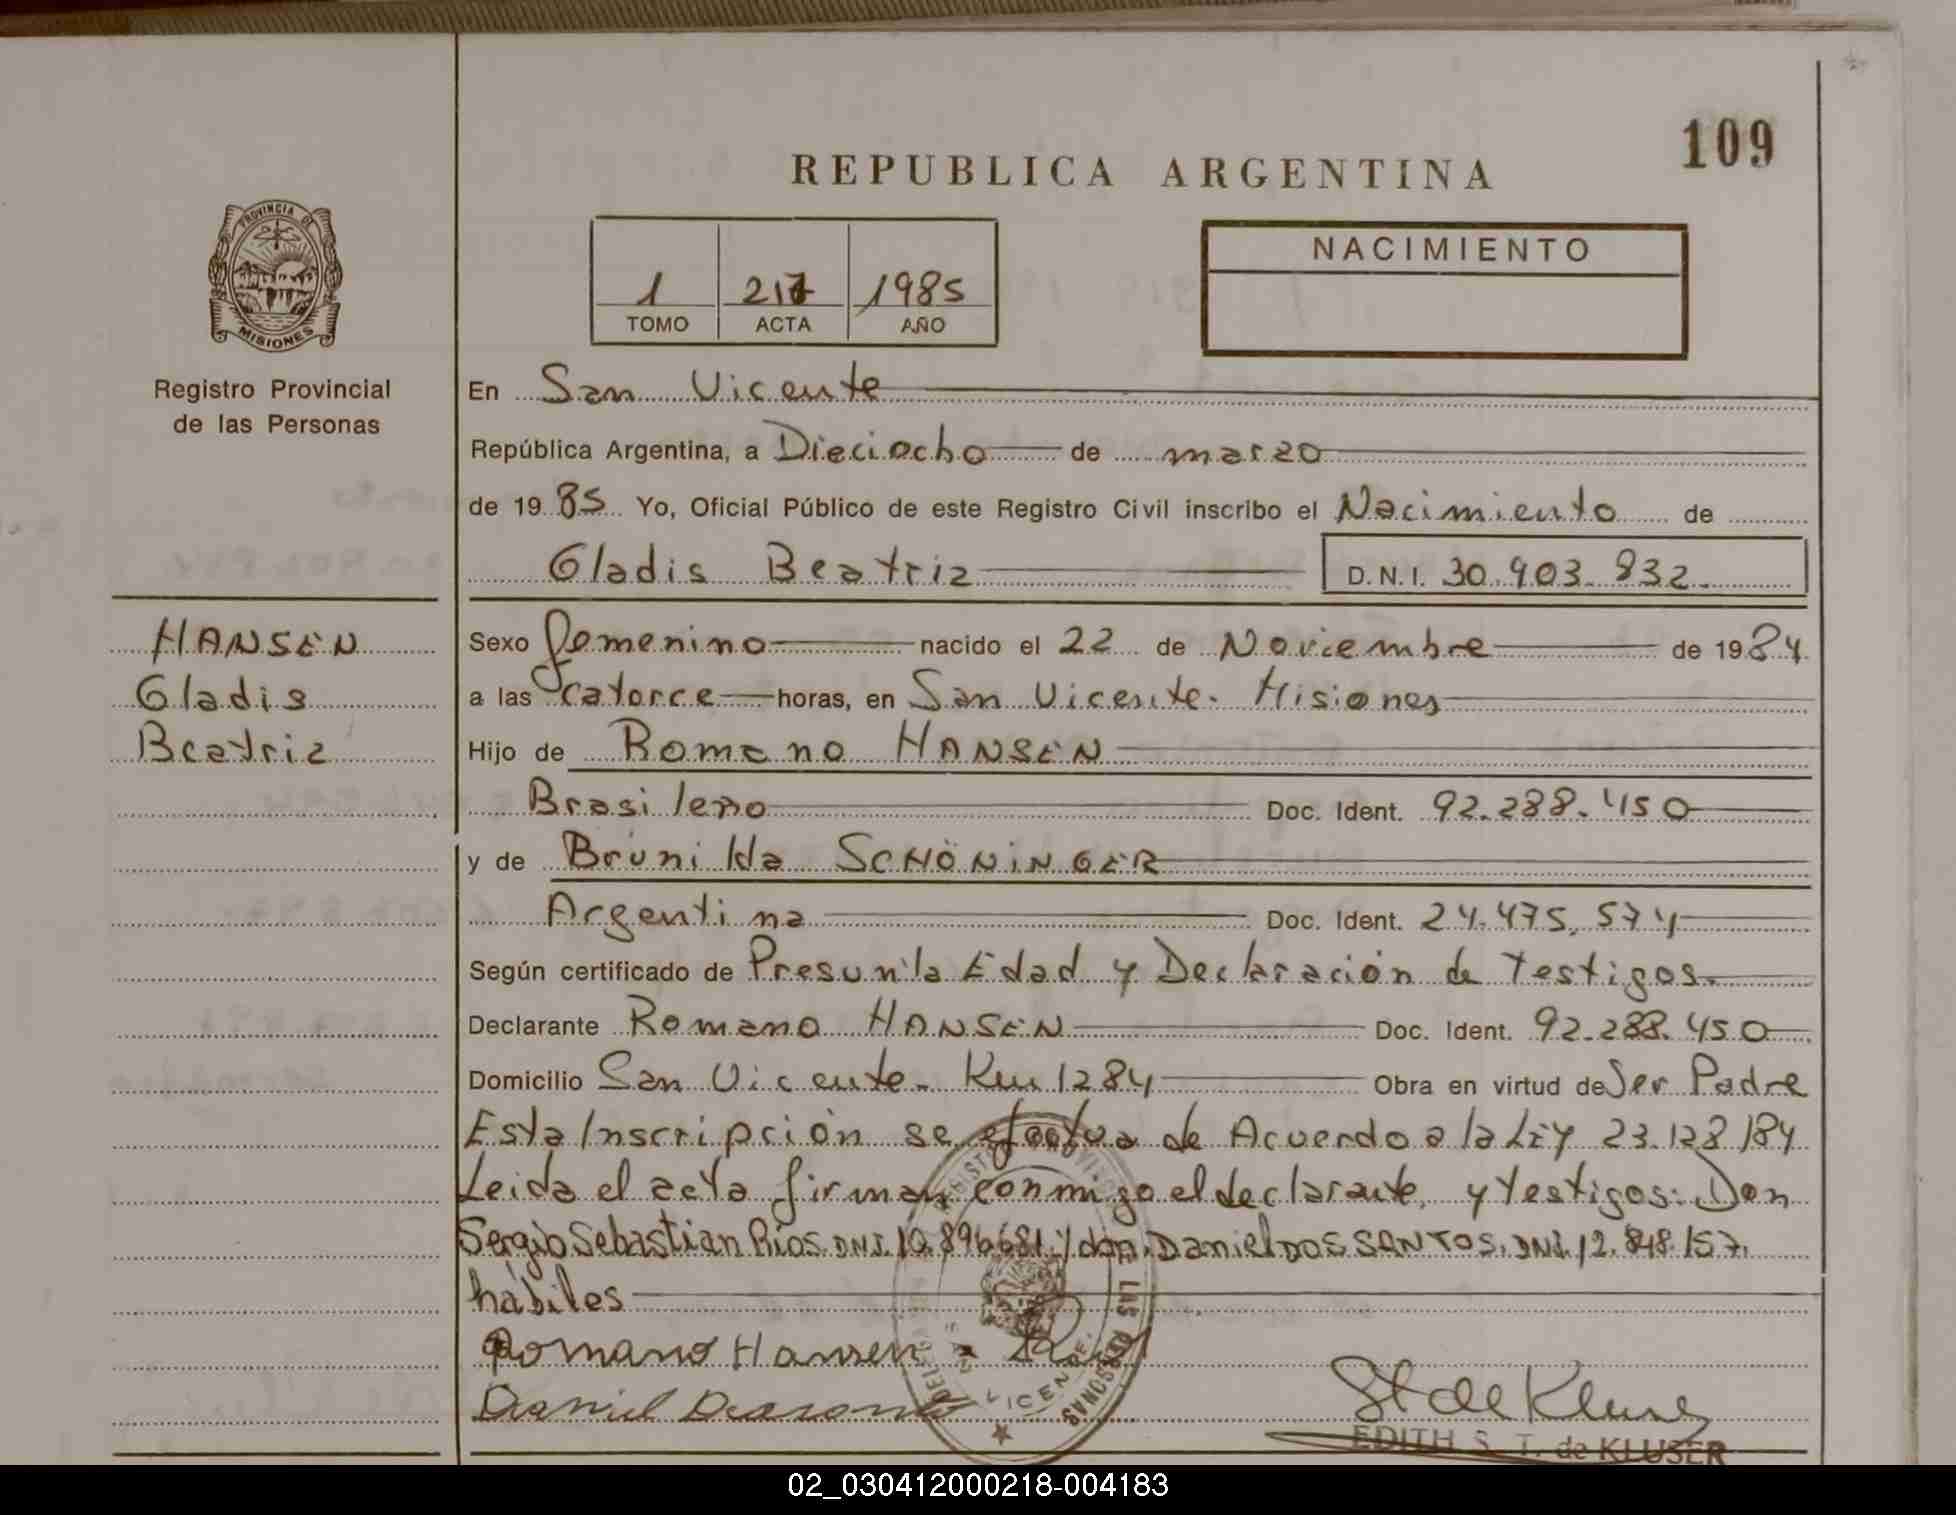 109
REPUBLICA ARGENTINA
PROVINCIA DE
MISIONES
Registro Provincial
de las Personas
1 217 1985
TOMO ACTA AÑO
NACIMIENTO
En San Vicente
República Argentina, a Dieciocho de marzo
de 1985 Yo, Oficial Público de este Registro Civil inscribo el Nacimiento de
Gladis Beatriz D.N.I. 30.903.832.
HANSEN
Gladis
Beatriz
Sexo femenino nacido el 22 de Noviembre de 1984.
a las catorce horas, en San Vicente. Misiones
Hijo de Romano HANSEN
Brasileño Doc. Ident. 92.288.450
y de Brunilda SCHÖNINGER
Argentina Doc. Ident. 24.475.574
Según certificado de Presunta Edad y Declaración de Testigos.
Declarante Romano HANSEN Doc. Ident. 92.288.450
Domicilio San Vicente. Km 1284 Obra en virtud de Ser Padre
Esta Inscripción se efectua de Acuerdo a la LEY 23.128/84
Leida el acta firman conmigo el declarante, y Testigos: Don
Sergio Sebastian Rios. DNI. 10.896.681. y don. Daniel DOS SANTOS. DNI. 12.848.157.
hábiles
Romano Hansen
Daniel
St de Kluser
EDITH S. T. de KLUSER
02_030412000218-004183